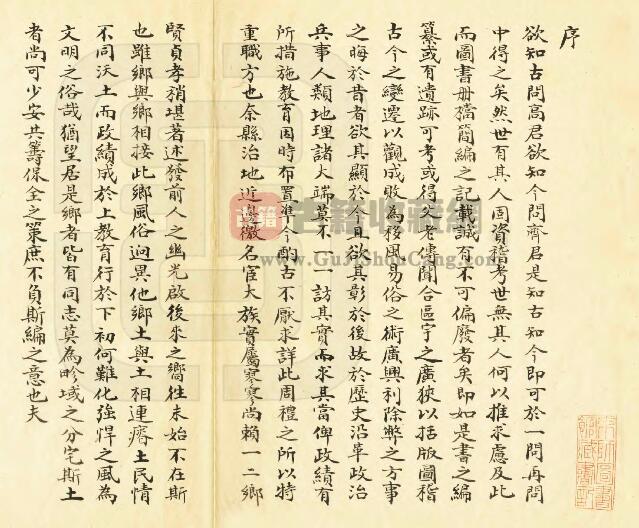 序
欲知古問高君欲知今問齊君是知古知今即可於一問再問
中得之矣然世有其人固資稽考世無其人何以推求慮及此
而圖書册檔簡編之記載誠有不可偏廢者矣即如是書之編
纂或有遺跡可考或得父老傳聞合區宇之廣狹以括版圖稽
古今之變遷以觀成敗為移風易俗之術廣興利除弊之方事
之晦於昔者欲其顯於今日欲其彰於後故於歷史沿革政治
兵事人類地理諸大端莫不一一訪其實而求其當俾政績有
所措施教育因時布置準今酌古不厭求詳此周禮之所以特
重職方也奈縣治地近邊徼名宦大族實屬寥寥尚賴一二鄉
賢貞孝稍堪著述發前人之幽光啟後來之嚮往未始不在斯
也雖鄉與鄉相接此鄉風俗迥異他鄉土與土相連瘠土民情
不同沃土而政績成於上教育行於下初何難化強悍之風為
文明之俗哉猶望居是鄉者皆有同志莫為畛域之分宅斯土
者尚可少安共籌保全之策庶不負斯編之意也夫
古籍
古籍收藏網
www.GuJiShouCang.com